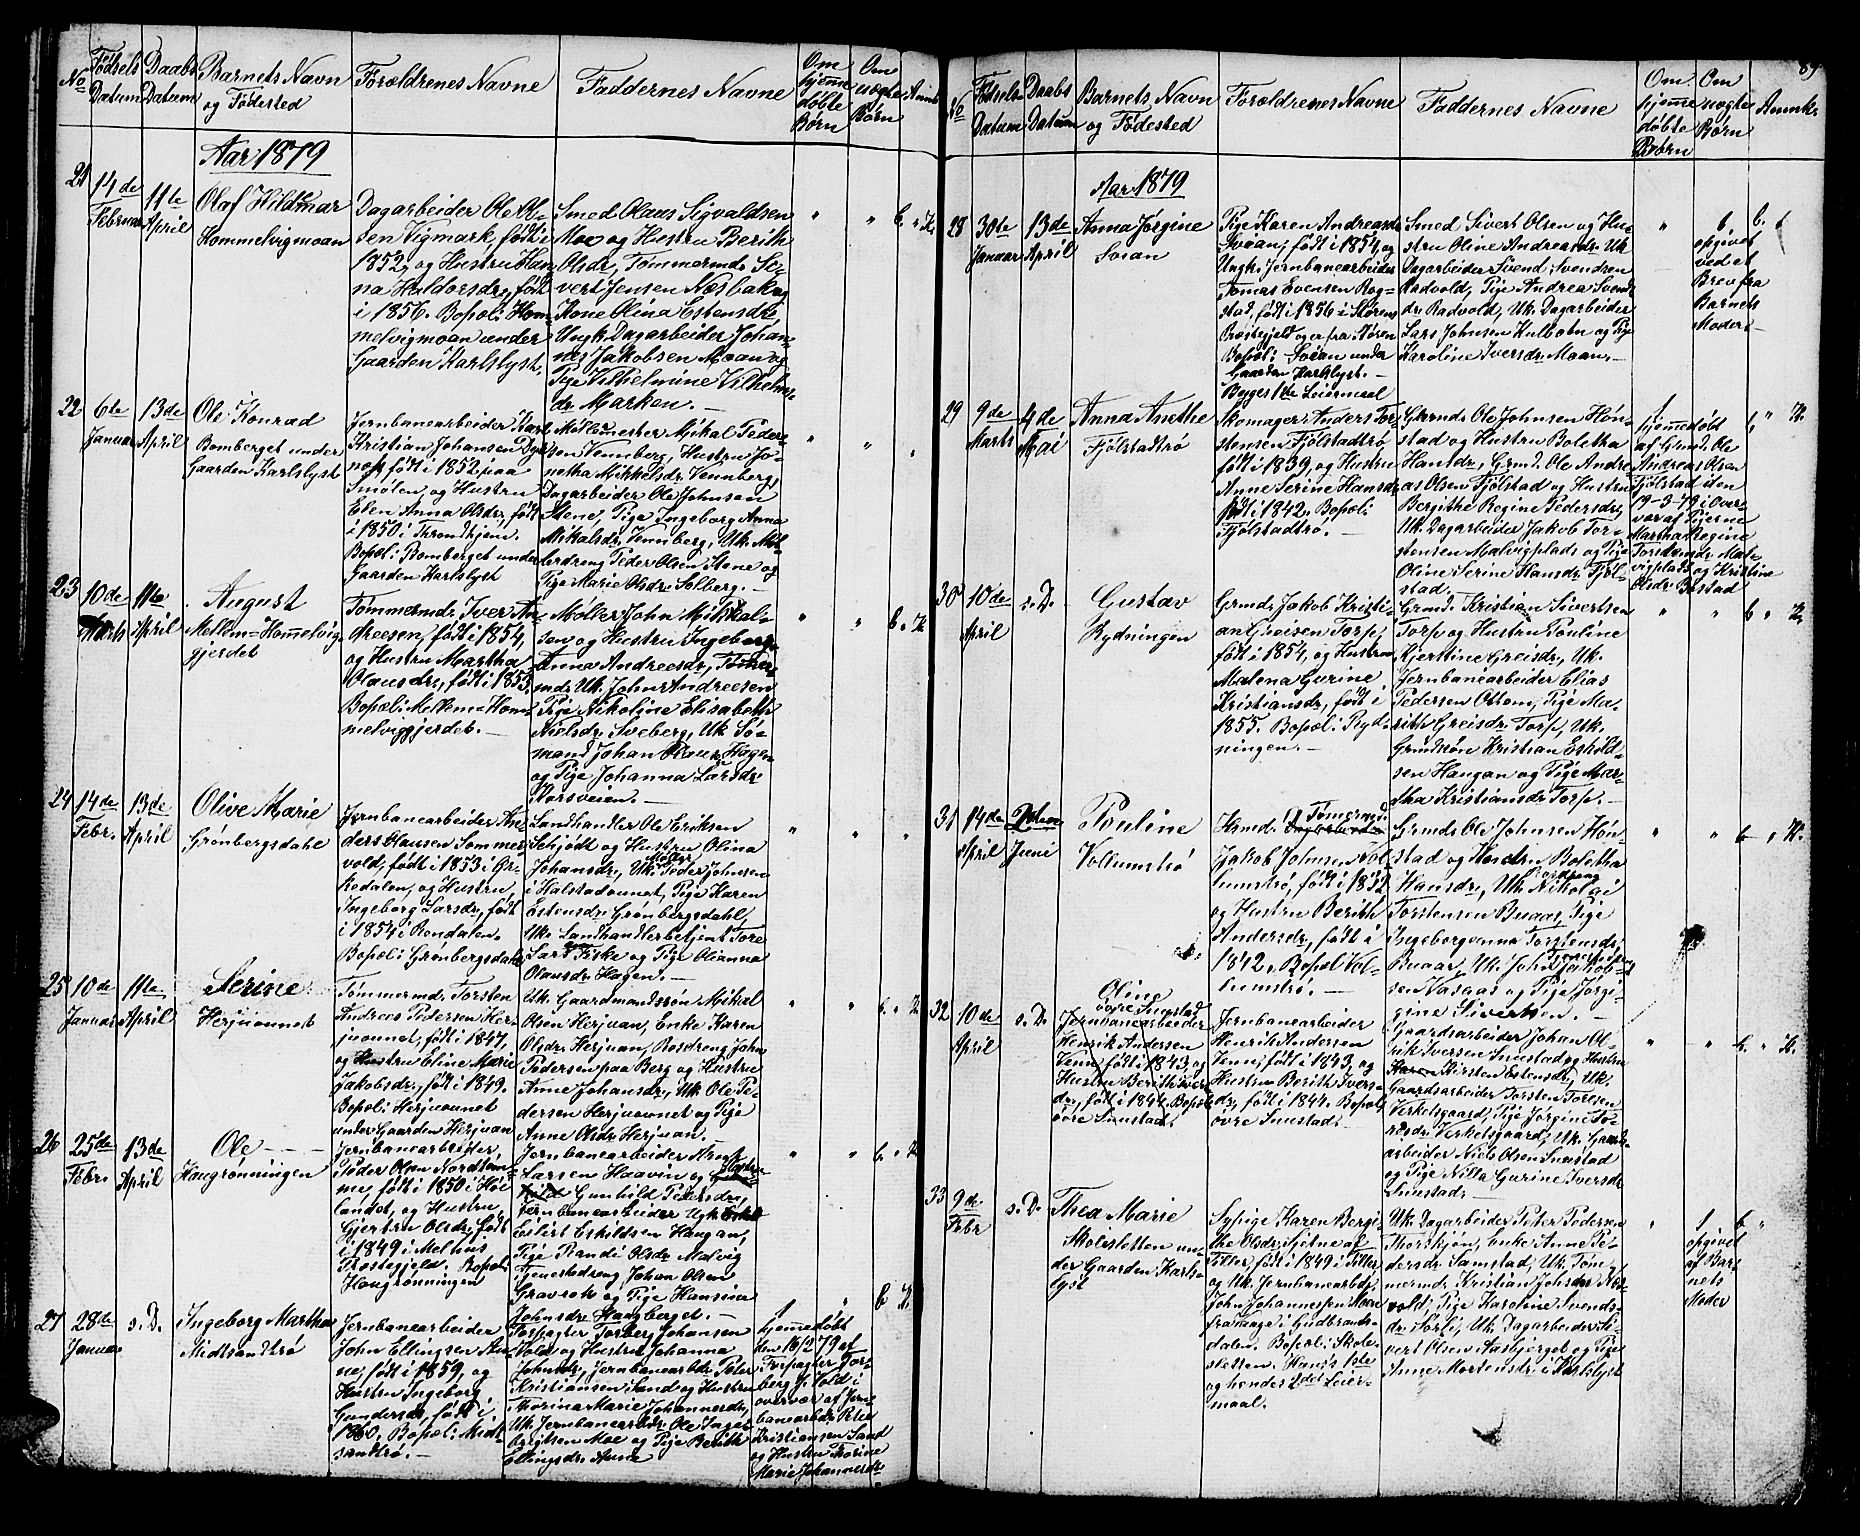 No
Fødsels
Datum
Daabs
Datum
Barnets Navn
og Fødested
Forældrenes Navne
Faddernes Navne
Om
hjemme
døbte
Børn
Om
uægte
Børn
Anmk
Aar 1879
21
14de
Februar
11te
April
Olaf Hildmar
Hommelvigmoan
Dagarbeider Ole Ol-
sen Vigmark, født i
1852, og Hustru Han-
na Haldorsdr, født
i 1856. Bopæl: Hom-
melvigmoan under
Gaarden Karlslyst.
Smed Olaus Sigvaldsen
Moe og Hustru Berith
Olsdr, Tømmermd. Si-
vert Jensen Næsbak og
Kone Olina Estensdr,
Ungk. Dagarbeider Johan-
nes Jakobsen Moan og
Pige Vilhelmine Vilhelms
dr. Marken. —
" " b. " K.
22
6te
Januar
13de
April
Ole Konrad
Bomberget under
Gaarden Karlslyst
Jernbanearbeider Karl
Kristian Johansen Dyr-
næs, født i 1852 paa
Smølen, og Hustru
Eben Anna Olsdr, født
i 1850 i Throndhjem.
Bopæl: Bomberget under
Gaarden Karlslyst
Møllemester Mikal Peder-
sen Vennberg, Hustru Jo-
netha Mikkelsdr. Vennberg,
Dagarbeider Ole Johnsen
Stene, Pige Ingeborg Anna
Mikalsdr. Vennberg, Uk. Møl-
lerdreng Peder Olsen Stene og
Pige Marie Olsdr. Solberg. —
" " "
23
10de
Marts
11te
April
August
Mellem-Hommelvig
gjerdet
Tømmermd. Iver An-
dreesen, født i 1854,
og Hustru Martha
Olausdr, født i 1853.
Bopæl: Mellem-Hom-
melviggjerdet. —
Møller John Mikkal-
sen og Hustru Ingeborg
Anna Andreesdr, Tømer-
md. Uk. John Andreesen
Pige Nikoline Elisabeth
Nielsdr. Sveberg, Uk. Sø-
mand Johan Olaus Hagen
og Pige Johanna Larsdr
Korsveien. —
" " b. " K
24
14de
Febr.
13de
April
Olive Marie
Grønbergsdahl
Jernbanearbeider An-
ders Hansen Sommer-
vold, født i 1853 i Or-
kedalen, og Hustru
Ingeborg Larsdr, født
i 1854 i Rendalen.
Bopæl: Grønbergsdahl
Landhandler Ole Eriksen
Schjødt og Hustru Olina
Johansdr, Uk. Peder Johnsen
i Halstadvunnet, Pige Karen
Estensdr. Grønbergsdahl,
Uk. Landhandlerbetjent Tore
Larsen Fiske og Pige Olianna
Olausdr. Hagen. —
" " "
25
10de
Januar
11te
April
Serine
Herjuvunnet
Tømmermd. Torsten
Andreas Pedersen Her-
juvunnet, født i 1847,
og Hustru Eline Marie
Jakobsdr, født i 1849.
Bopæl: Herjuvunnet
under Gaarden Herjuan
Uk. Gaardmandssøn Mikal
Olsen Herjuan, Enke Karen
Olsdr. Herjuan, Bosdreng John
Pedersen paa Berg og Hustru
Anne Johansdr, Uk. Ole Pe-
dersen Herjuvunnet og Pige
Anne Olsdr. Herjuan.
" " b. " K
26
25de
Febr.
13de
April
Ole
Haugrønningen
Jernbanearbeider,
Peder Olsen Nordtøm-
me, født i 1850 i Høi-
landet, og Hustru
Gjertru Olsdr, født
i 1849 i Melhus
Præstegjeld. Bopæl:
Haugrønningen
Jernbanearbeider Arnt
Larsen Haavin og Hustru
Gunhild Pedersdr,
Jernbanearbeider Ugk.
Eilert Eskildsen Haugan,
Pige Randi Olsdr. Malvig
Tjenestedreng Johan Olsen
Gravrok og Pige Hansina
Johnsdr. Haugberget. —
" " b. " K
27
28de
Januar
s. D.
Ingeborg Martha
Midtsandtrø
Jernbanearbeider
John Ellingsen Au-
ne, født i 1859, og
Hustru Ingeborg
Gundersdr, født i
1860. Bopæl: Midt-
sandtrø. —
Forpagter Torberg Johansen
Vold og Hustru Johanna
Johnsdr, Jernbanearbdr. Peter
Kristiansen Sand og Hustru
Thorina Marie Johannesdr,
Uk. Jernbanearbdr. Ole Inge-
brigtsen Moe og Pige Berith
Ellingsdr. Aune
1
hjemmedøbt
den 16/2 79 af
Forpagter Tor-
berg J. Vold i
overvær af Jern-
banearbdr. Peter
Kristiansen Sand
og Hustru Thorine
Marie Johannesdr
" b K.
89
No
Fødsels
Datum
Daabs
Datum
Barnets Navn
og Fødested
Forældrenes Navne
Faddernes Navne
Om
hjemme
døbte
Børn
Om
uægte
Børn
Anmk.
Aar 1879
28
30te
Januar
13de
April
Anna Jørgine
Svian
Pige Karen Andreasdr
Svian, født i 1854, og
Ungk. Jernbanearbeider
Tomas Evensen Rog-
stad, født i 1856 i Størens
Præstegjeld og er fra Støren
Bopæl: Svian under
Gaarden Karlslyst. —
Begges 1ste Leiermaal
Smed Sivert Olsen og Hu-
stru Oline Andreasdr, Uk.
Dagarbeider Svend Svendsen
Rødvold, Pige Andrea Svends
dr. Rødvold, Uk. Dagarbeider
Lars Johnsen Hulbakn og Pige
Karoline Iversdr. Moan. —
"
1
opgivet
ved et
Brev fra
Barnets
Moder
b.
29
9de
Marts
4de
Mai
Anna Anethe
Fjølstadtrø
Skomager Anders Tor-
stensen Fjølstadtrø
født i 1839, og Hustru
Anne Serine Hansdr
født i 1842. Bopæl:
Fjølstadtrø. —
Grmd. Ole Johnsen Høn-
stad og Hustru Boletha
Hansdr, Grmd. Ole Andre-
as Olsen Fjølstad og Hustru
Bergithe Regine Pedersdr,
Uk. Dagarbeider Jakob Tor-
stensen Malvigplads og Pige
Oline Serine Hansdr. Fjøl-
stad. —
1
hjemmedøbt
af Grmd. Ole
Andreas Olsen
Fjølstad den
19-3-79 i Over-
vær af Pigerne
Martha Regine
Torstensdr. Mal-
vigplads og Kristine
Olsdr. Bostad
b " K.
30
10de
April
s. D.
Gustav
Rydningen
Grmd. Jakob Kristi-
an Greisen Torp,
født i 1854, og Hustru
Malena Gurine
Kristiansdr, født i
1855. Bopæl: Ryd-
ningen. —
Grmd. Kristian Sivertsen
Torp og Hustru Pouline
Kjerstine Greisdr, Uk.
Jernbanearbeider Elias
Pedersen Ottem, Pige Ma-
rith Greisdr. Torp, Uk.
Grmdsøn Kristian Eskild-
sen Haugan og Pige Mar-
tha Kristiansdr Torp. —
" " b " K.
31
14de
April
2den
Juni
Pouline
Vollumstrø
Hsmd. Tømermd.
Jakob Johnsen Vol-
lumstrø, født i 1832,
og Hustru Berith
Andersdr, født i
1842. Bopæl: Vol-
lumstrø. —
Grmd. Ole Johnsen Høn-
stad og Hustru Boletha
Hansdr, Uk. Nikolai
Torstensen Buaas, Pige
Ingeborganna Torstensdr.
Buaas, Uk. John Jakob-
sen Vasaas og Pige Jørgi-
gine Sivertsen. —
" " b " K.
32
10de
April
s. D.
Oline
øvre Smestad
Jernbanearbeider
Henrik Andersen
Venn, født i 1843, og
Hustru Berith Ivers-
dr, født i 1844. Bopæl
øvre Smestad.
Jernbanearbeider
Henrik Andersen
Venn, født i 1843, og
Hustru Berith Ivers-
dr, født i 1844. Bopæl:
øvre Smestad.
Gaardsarbeider Johan Ol-
rik Iversen Smestad og Hustru
Karen Kirsten Estensdr, Uk.
Gaardsarbeider Torsten Toresen
Verkelsgaard, Pige Jørgine To-
resdr. Verkelsgaard, Uk. Gaards-
arbeider Niels Olsen Smestad
og Pige Nilla Gurine Iversdr
Smestad. —
" " b. " K.
33
9de
Febr
s. D.
Thea Marie
Skolesletten un-
der Gaarden Karls-
lyst
Sypige Karen Bergi-
the Olsdr. Sjetne af
Tiller, født i 1849 i Tiller
og Uk. Jernbanearbdr.
John Johannesen Moen
fra Vaage i Gudbrands-
dalen. Bopæl: Skole-
sletten. Hans 1ste
og hendes 2det Leier-
maal.
Uk. Dagarbeider Peter Pedersen
Thorshjøn, Enke Anne Pe-
dersdr. Samstad, Uk. Tøm-
mermd. Kristian Johsdr Rød-
vold, Pige Karoline Svends-
dr. Sørli, Uk. Dagarbeider Si-
vert Olsen Aasbjerget og Pige
Anne Mortensdr. i Karlslyst
"
1
opgivet
af Bar-
nets
Moder
b "